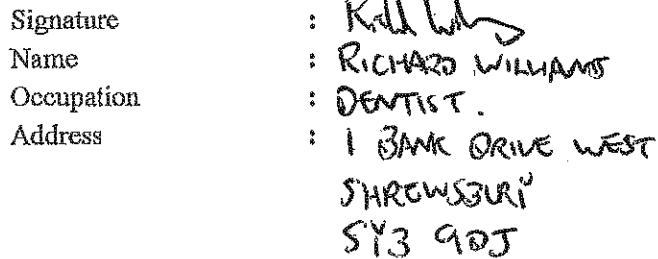 Signature :
Name : RICHARD WILLIAMS
Occupation : DENTIST.
Address : 1 BANK DRIVE WEST
SHREWSBURY
SY3 9DJ